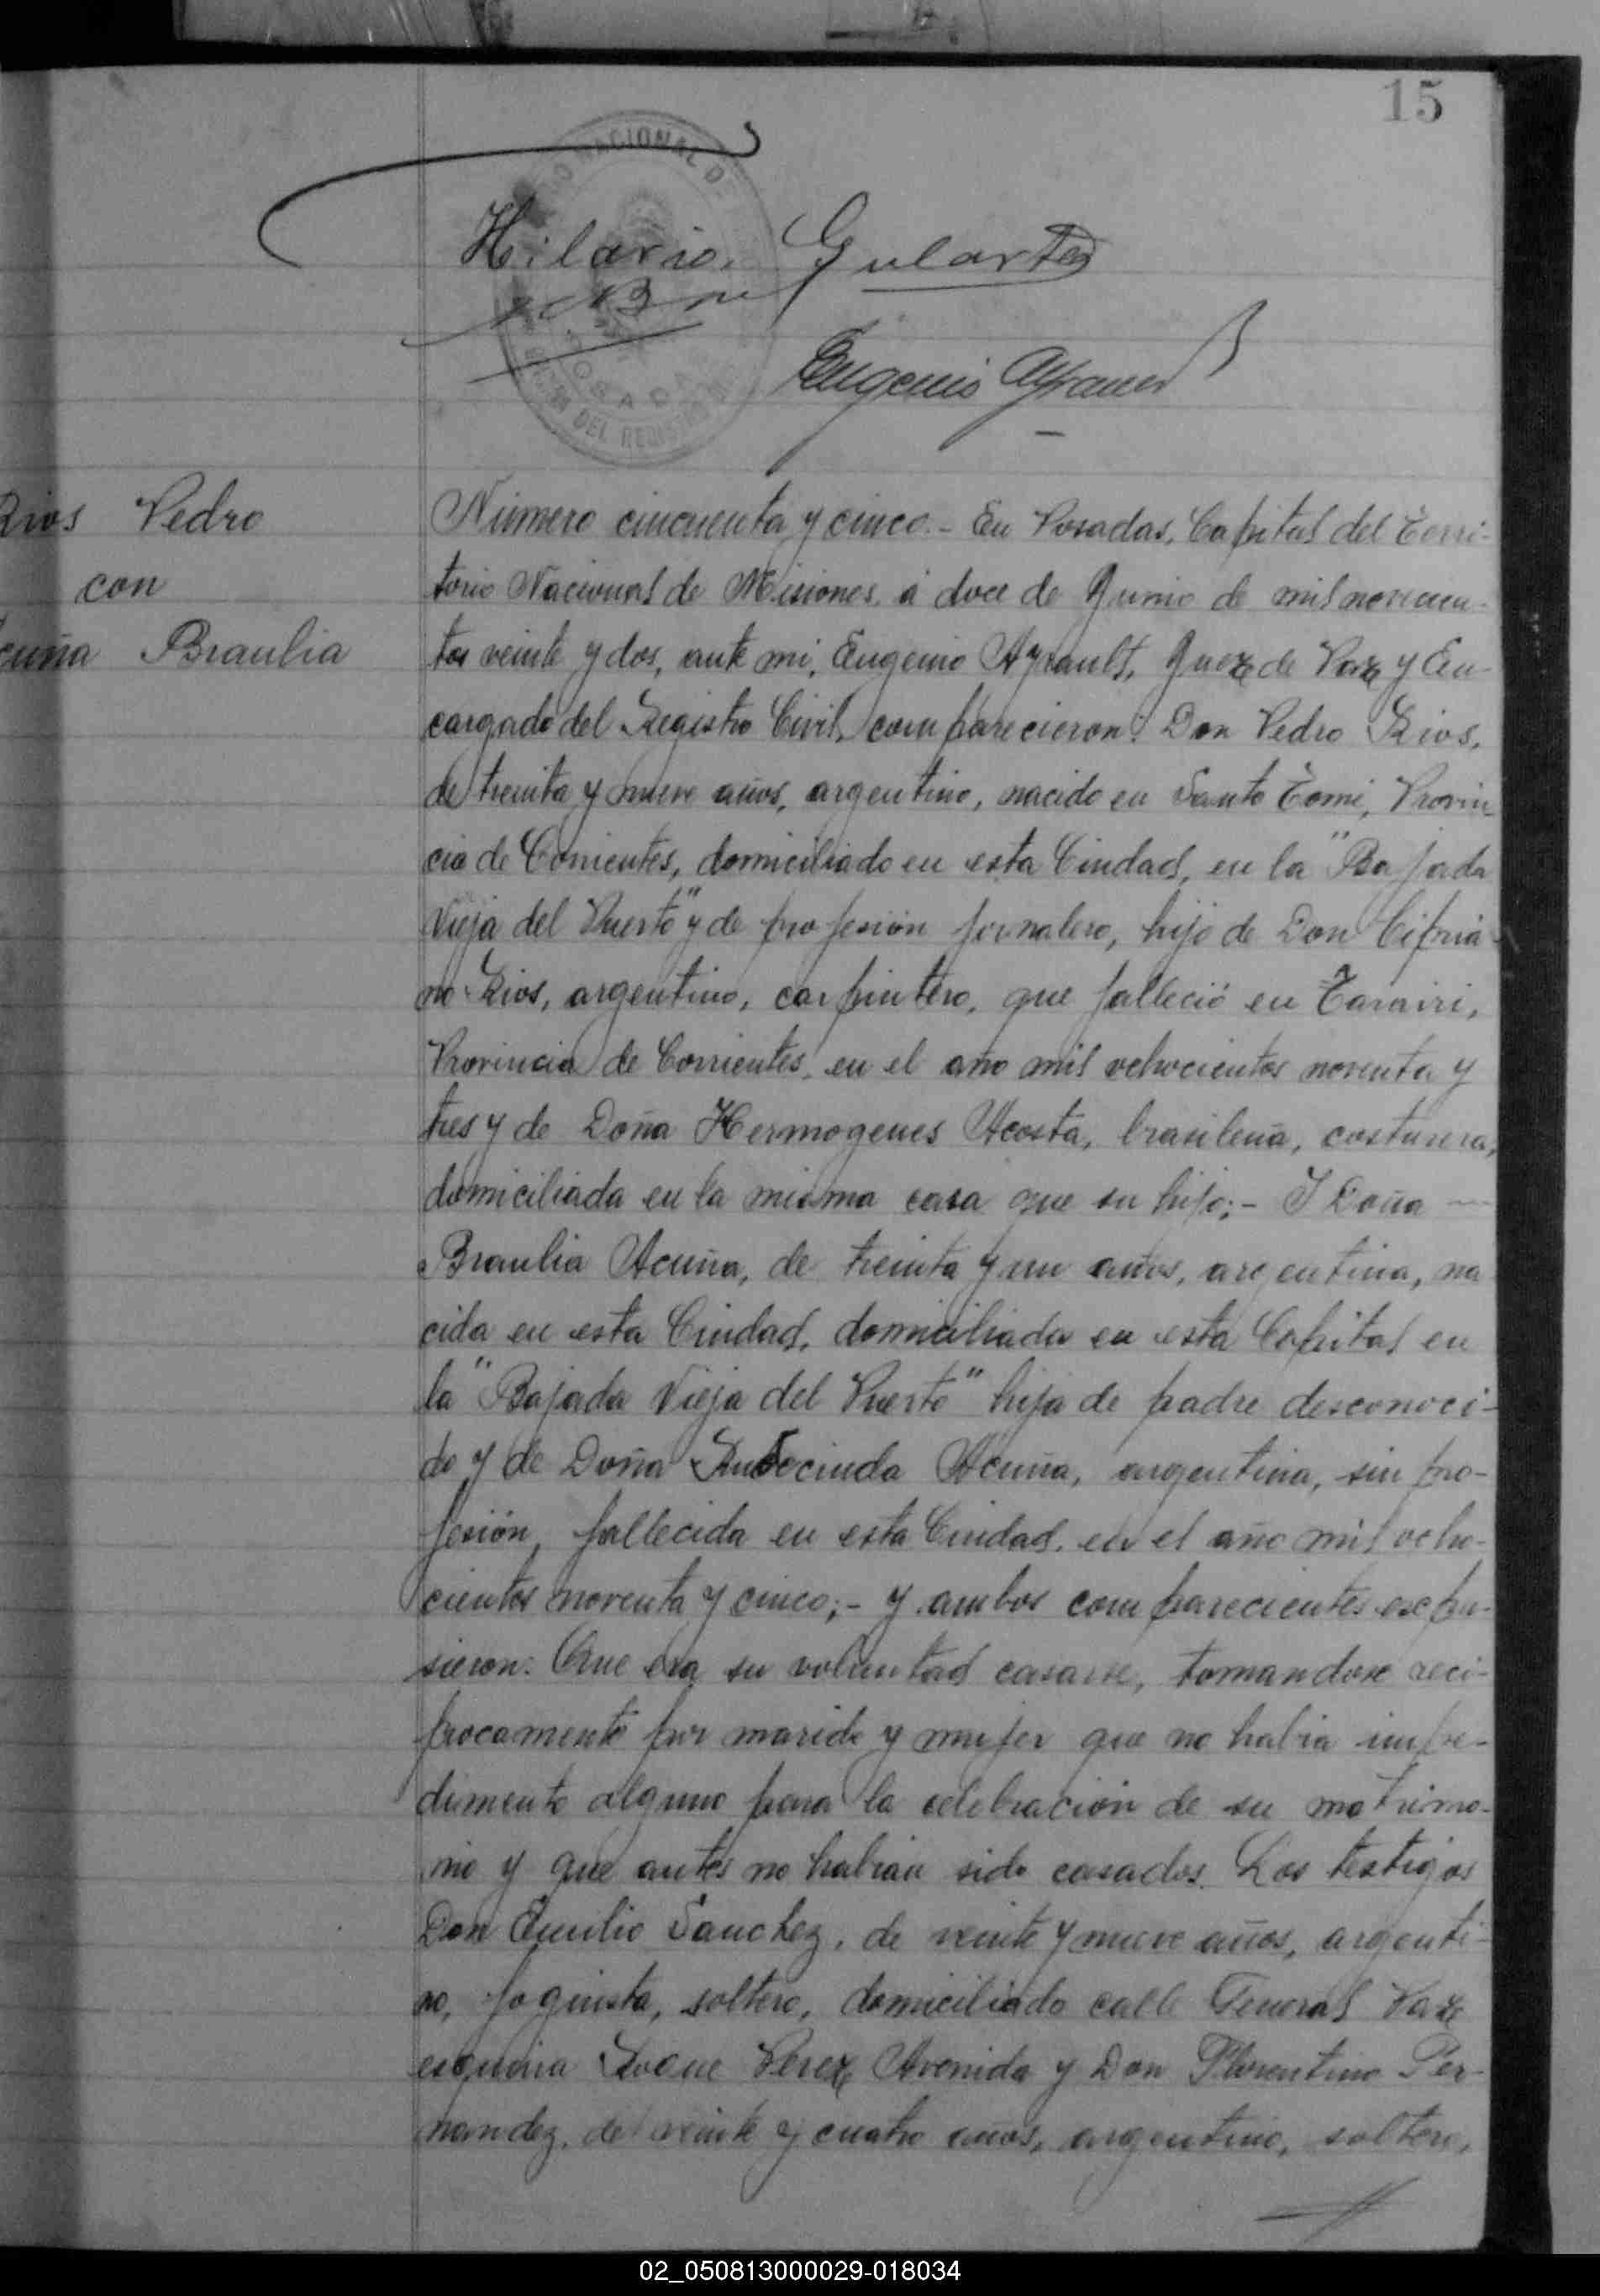 15
Hilario Gularte
Eugenio Ayrault
Rios Pedro
con
Acuña Braulia
Número cincuenta y cinco.- En Posadas, Capital del Terri-
torio Nacional de Misiones, á doce de Junio de mil novecien-
tos veinte y dos, ante mi, Eugenio Ayrault, Juez de Paz y En-
cargado del Registro Civil, comparecieron: Don Pedro Rios,
de treinta y nueve años, argentino, nacido en Santo Tomé, Provin
cia de Corrientes, domiciliado en esta Ciudad, en la "Bajada
Vieja del Puerto" y de profesión jornalero, hijo de Don Cipria
no Rios, argentino, carpintero, que falleció en
Provincia de Corrientes, en el año mil ochocientos noventa y
tres y de Doña Hermogenes Acosta, brasileña, costurera,
domiciliada en la misma casa que su hijo;- Y Doña
Braulia Acuña, de treinta y un años, argentina, na
cida en esta Ciudad, domiciliada en esta Capital en
la "Bajada Vieja del Puerto" hija de padre desconoci-
do y de Doña Rudecinda Acuña, argentina, sin pro-
fesión, fallecida en esta Ciudad, en el año mil ocho-
cientos noventa y cinco;- y ambos comparecientes expu-
sieron: Que era su voluntad casarse, tomandose reci-
procamente por marido y mujer que no habia impe-
dimento alguno para la celebración de su matrimo-
nio y que antes no habian sido casados. Los testigos
Don Emilio Sanchez, de veinte y nueve años, argenti-
no, foguista, soltero, domiciliado calle General Paz
esquina Roque Perez Avenida y Don Florentino Fer-
nandez, de veinte y cuatro años, argentino, soltero,
02_050813000029-018034